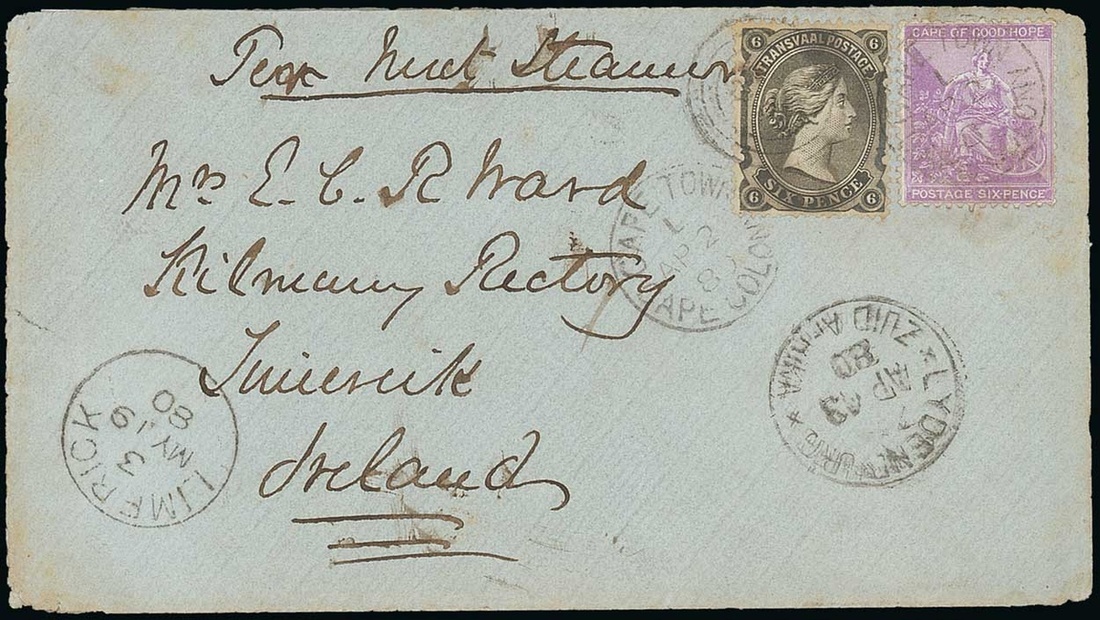 Per Next Steamer
6 TRANSVAAL POSTAGE 6
6 SIX PENCE 6
CAPE OF GOOD HOPE
POSTAGE SIX-PENCE
Mrs E. C. R Ward
Kilmany Rectory
Limerick
Ireland
CAPE TOWN
AP 2
8
CAPE COLO
LYDENBURG
ZUID AFRIKA
AP
80
LIMERICK
3
MY 19
80